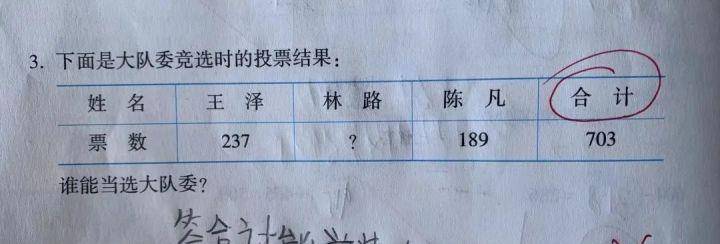 3. 下面是大队委竞选时的投票结果：
姓 名 王 泽 林 路 陈 凡 合 计
票 数 237 ? 189 703
谁能当选大队委？
答合计能当